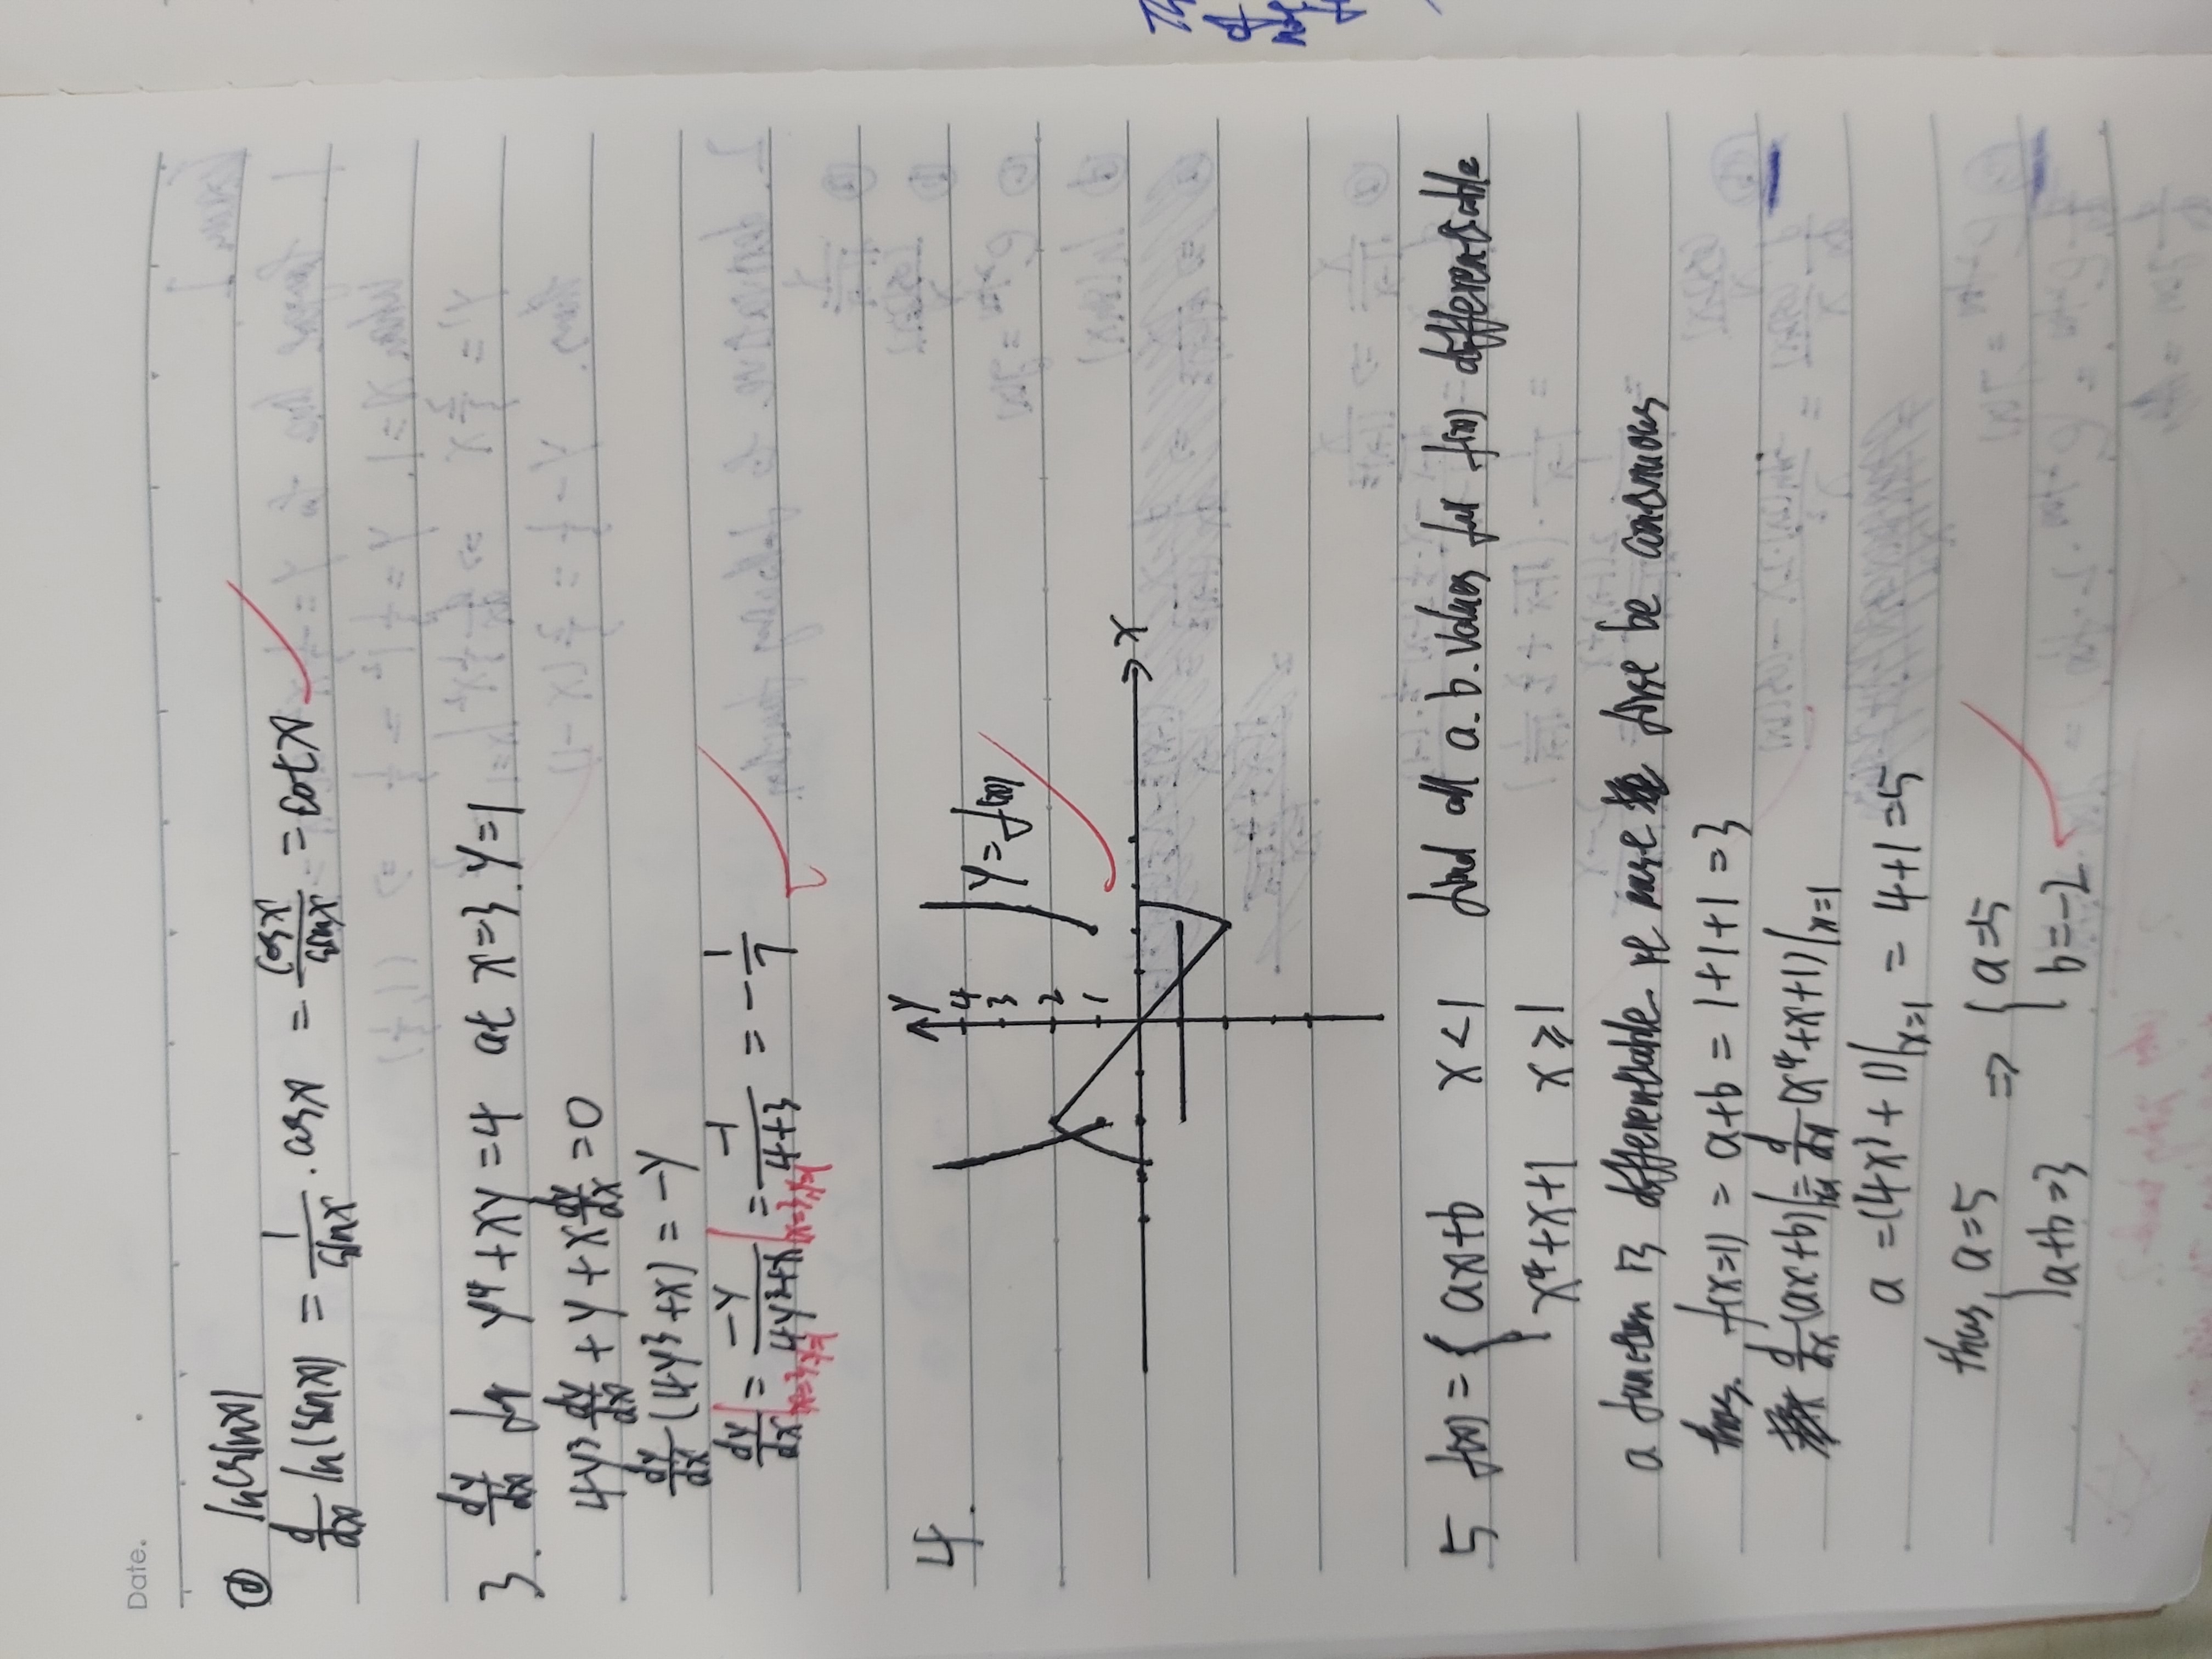 Date.
ⓓ ln(sinx)
d/dx ln(sinx) = 1/sinx · cosx = cosx/sinx = cotx
3. dy/dx for y⁴+xy=4 at x=3. y=1
4y³ dy/dx + y + x dy/dx = 0
dy/dx (4y³+x) = -y
dy/dx |x=3,y=1 = -y/(4y³+x) |x=3,y=1 = -1/(4+3) = -1/7
4.
y
4
3
y=f(x)
2
1
x
5 f(x) = { ax+b x<1 find all a. b. values for f(x) differentiable
x⁴+x+1 x⩾1
a function is differentiable must first be continuous
thus. f(x=1) = a+b = 1+1+1 = 3
d/dx (ax+b)| = d/dx (x⁴+x+1)|x=1
a = (4x³+1)|x=1 = 4+1 = 5
thus, { a=5 ⇒ { a=5
a+b=3 b=-2